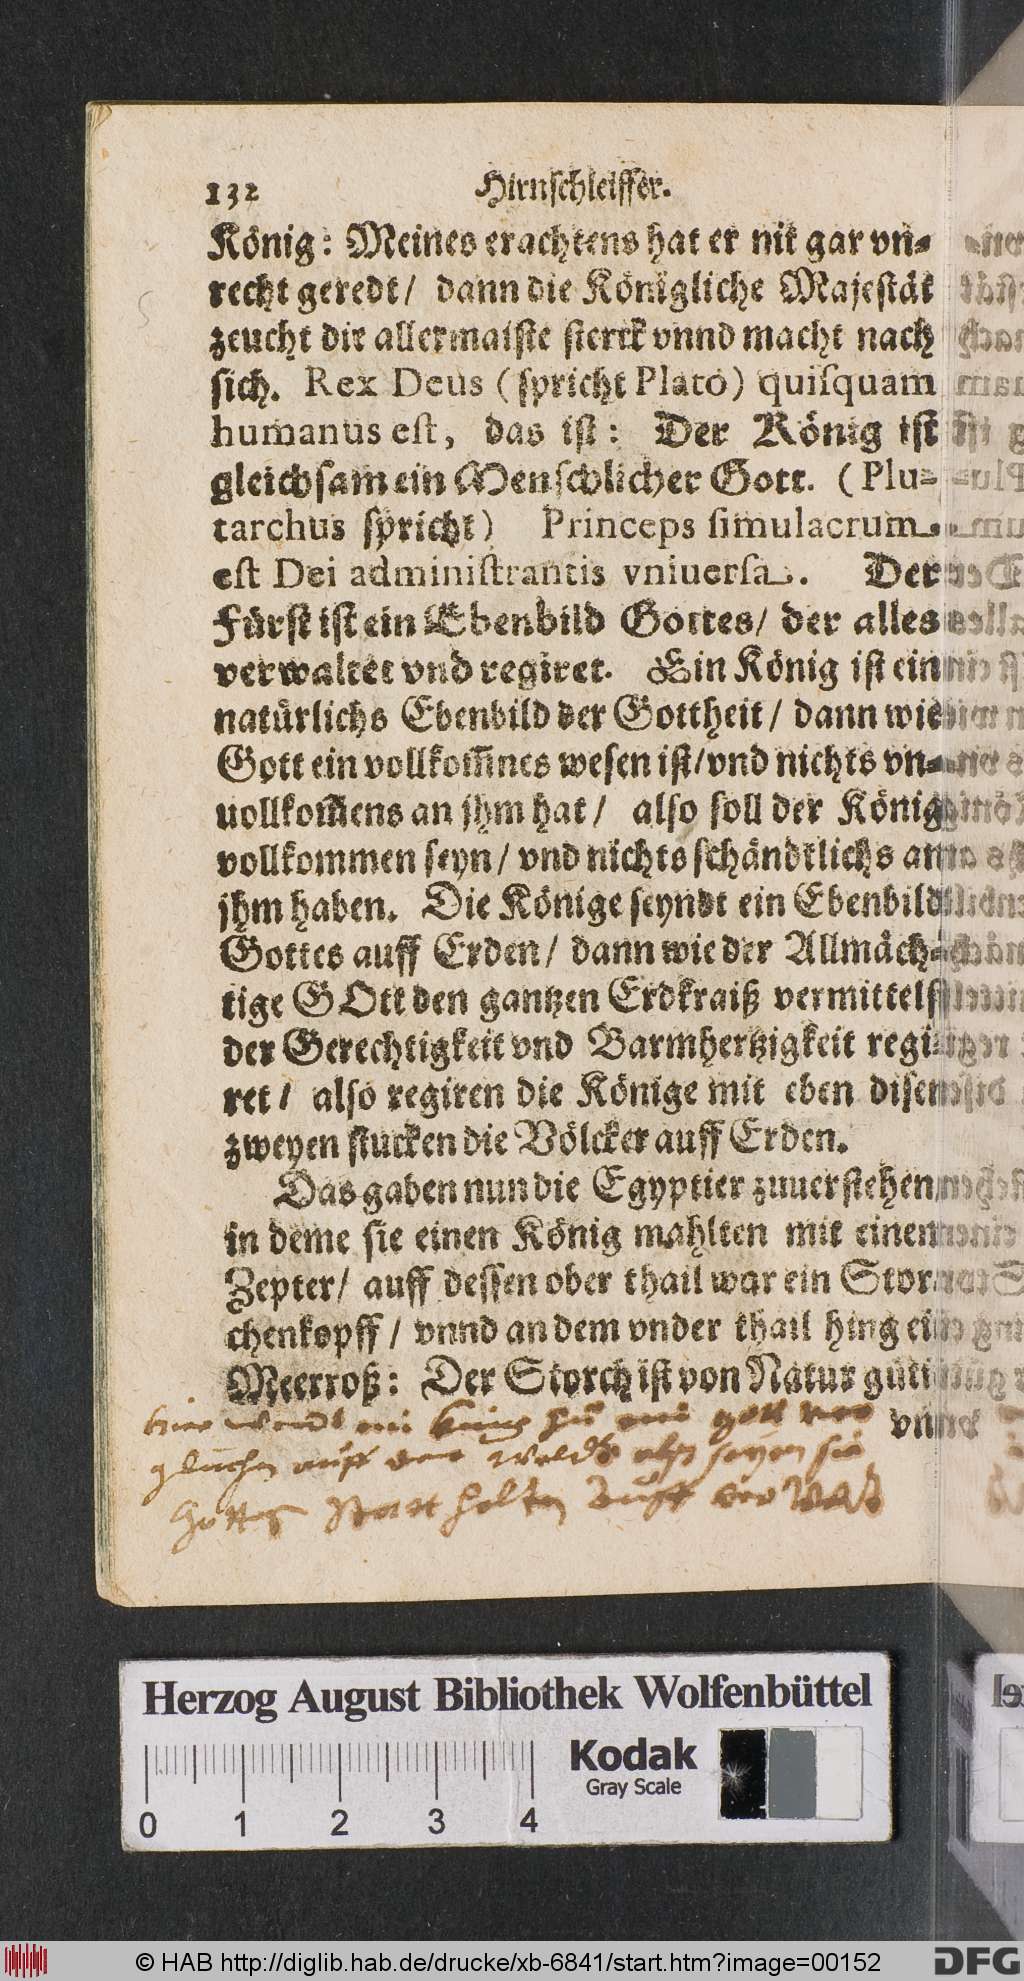 132 Hirnschleiffer.
König: Meines erachtens hat er nit gar vn-
recht geredt/ dann die Königliche Majestät
zeucht die allermaiste sterck vnnd macht nach
sich. Rex Deus (spricht Plato) quisquam
humanus est, das ist: Der König ist
gleichsam ein Menschlicher Gott. (Plu-
tarchus spricht) Princeps simulacrum
est Dei administrantis vniuersa. Der
Fürst ist ein Ebenbild Gottes/ der alles
verwaltet vnd regiret. Ein König ist ein
natürlichs Ebenbild der Gottheit/ dann wie
Gott ein vollkom̄nes wesen ist/ vnd nichts vn-
uollkom̄ens an jhm hat/ also soll der König
vollkommen seyn/ vnd nichts schändtlichs an
jhm haben. Die Könige seyndt ein Ebenbild
Gottes auff Erden/ dann wie der Allmäch-
tige GOtt den gantzen Erdkraiß vermittelst
der Gerechtigkeit vnd Barmhertzigkeit regi-
ret/ also regiren die Könige mit eben disen
zweyen stucken die Völcker auff Erden.
Das gaben nun die Egyptier zuuerstehen
in deme sie einen König mahlten mit einem
Zepter/ auff dessen ober thail war ein Stor-
chenkopff/ vnnd an dem vnder thail hing ein
Meerroß: Der Storch ist von Natur güti
vnnd
gott
auff der seyen sie
Gottes statt halten auff der
Herzog August Bibliothek Wolfenbüttel
Kodak
Gray Scale
0 1 2 3 4
© HAB http://diglib.hab.de/drucke/xb-6841/start.htm?image=00152 DFG